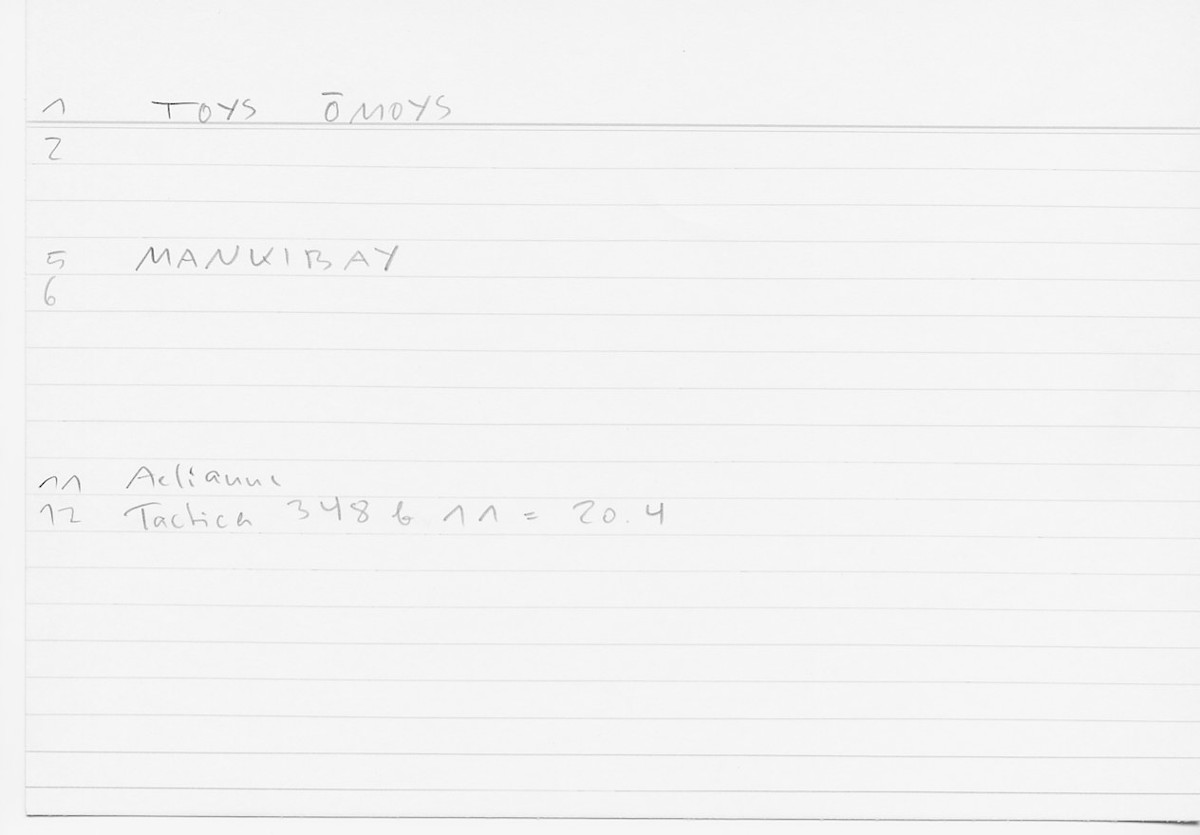 1 TOYS ŌMOYS
2
5 MANKIBAY
6
11 Aelianus
12 Tactica 348 b 11 = 20.4